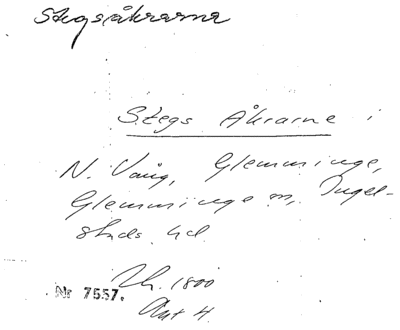 Stegsåkrarna
Stegs Åkrarne i
N. Vång, Glemminge,
Glemminge sn, Ingel-
stads hd.
Lh. 1800
Nr 7557.
Akt 4.